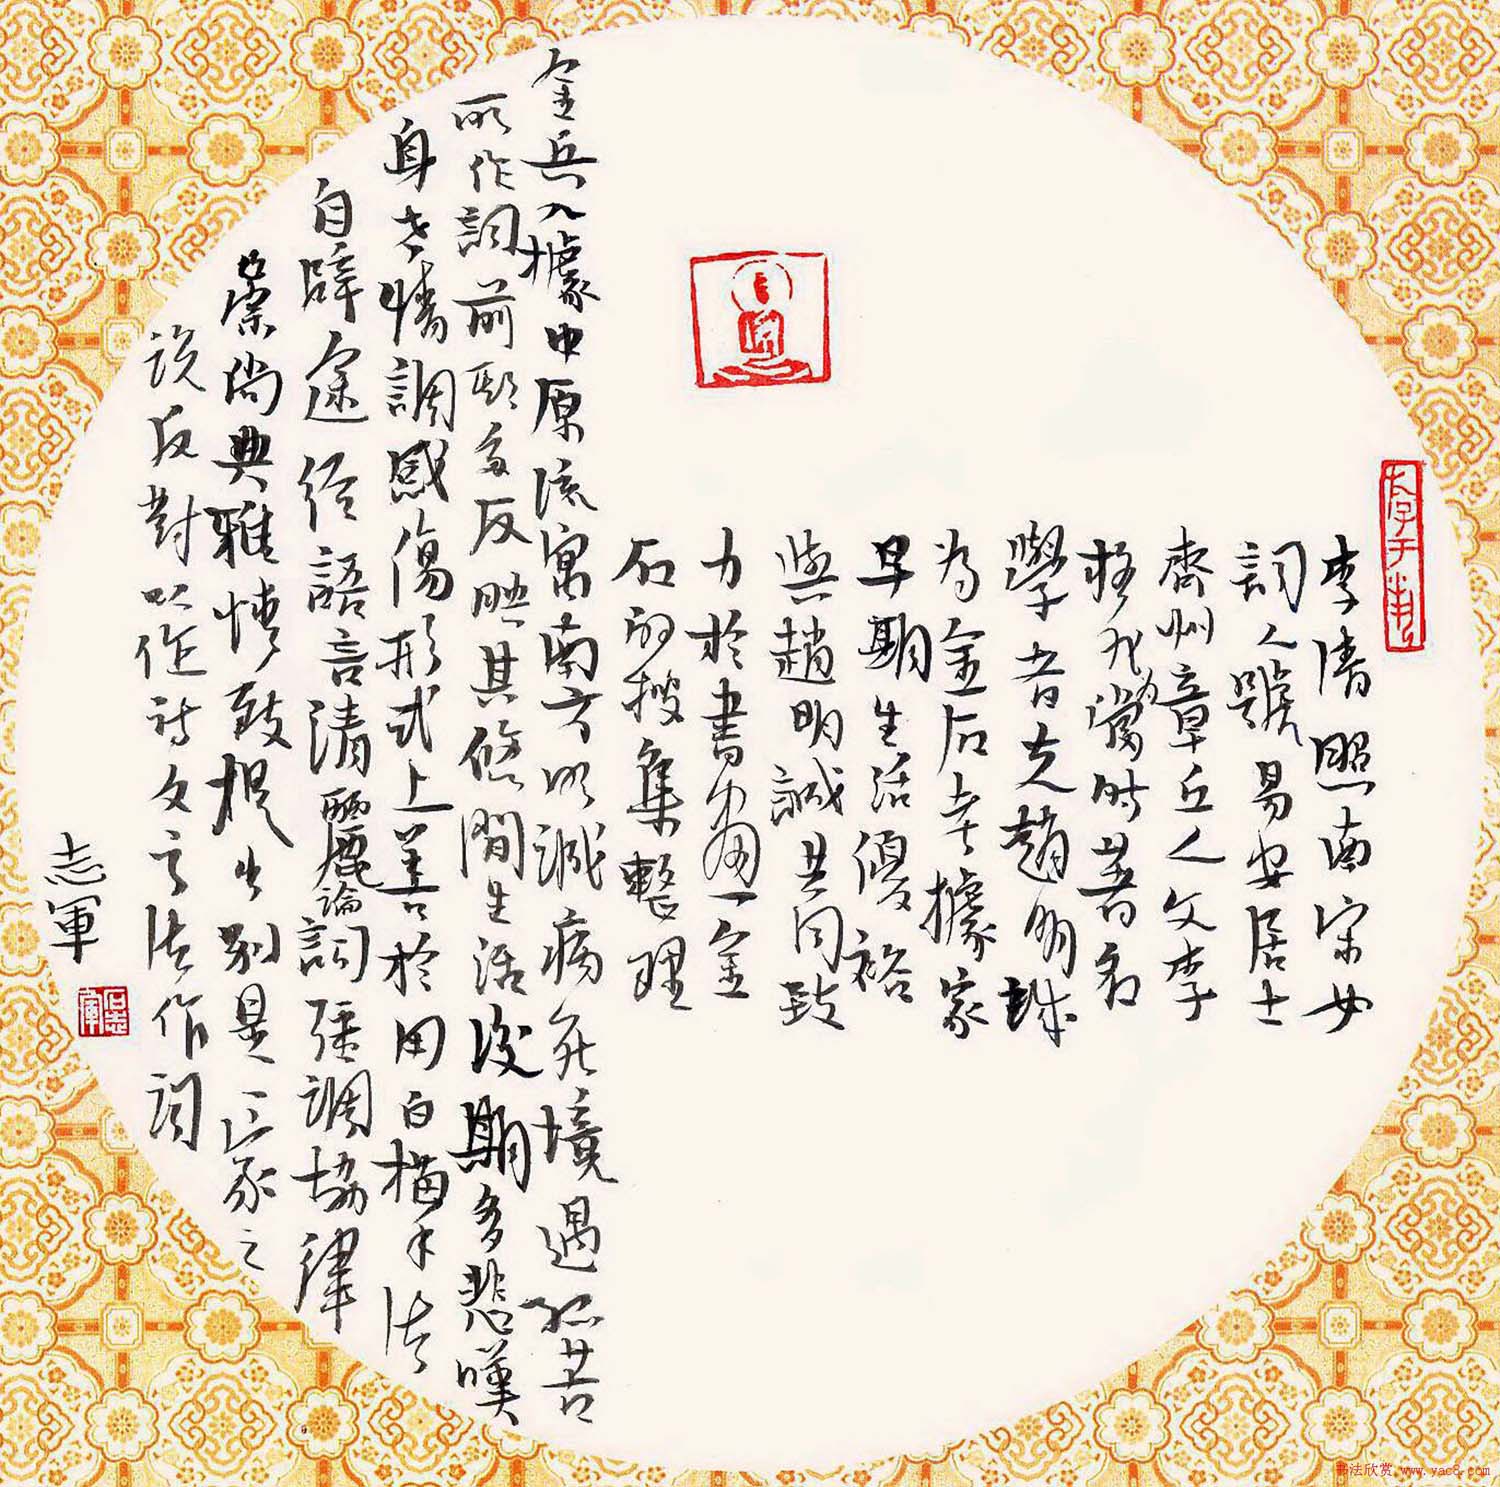 李清照南宋女
詞人號易安居士
齊州章丘人父李
格非為當時著名
學者夫趙明誠
為金石考據家
早期生活優裕
與趙明誠共同致
力於書畫金
石的搜集整理
金兵入據中原流寓南方明誠病死境遇孤苦
所作詞前期多反映其悠閒生活後期多悲嘆
身世情調感傷形式上善於用白描手法
自辟途徑語言清麗論詞強調協律
崇尚典雅情致提出別是一家之
說反對以作詩文之法作詞
志軍
石志軍
书法欣赏 www.yac8.com